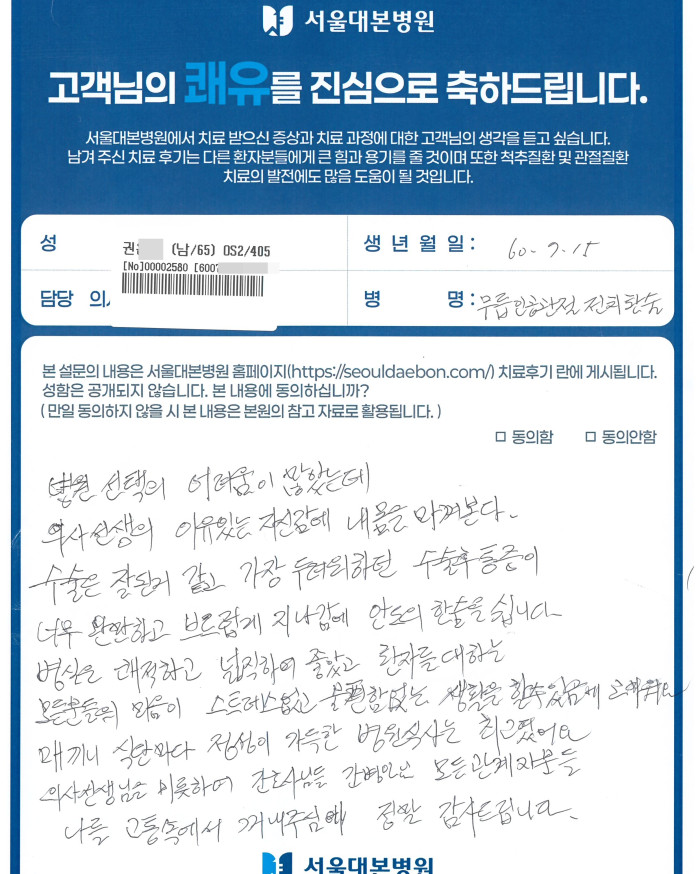 서울대본병원
고객님의 쾌유를 진심으로 축하드립니다.
서울대본병원에서 치료 받으신 증상과 치료 과정에 대한 고객님의 생각을 듣고 싶습니다.
남겨 주신 치료 후기는 다른 환자분들에게 큰 힘과 용기를 줄 것이며 또한 척추질환 및 관절질환
치료의 발전에도 많음 도움이 될 것입니다.
성
권 (남/65) OS2/405
[No]00002580 [600
생 년 월 일 :
60-7-15
담당 의
병 명 :
무릎인공관절 전치환술
본 설문의 내용은 서울대본병원 홈페이지(https://seouldaebon.com/) 치료후기 란에 게시됩니다.
성함은 공개되지 않습니다. 본 내용에 동의하십니까?
( 만일 동의하지 않을 시 본 내용은 본원의 참고 자료로 활용됩니다. )
□ 동의함 □ 동의안함
병원 선택의 어려움이 많았는데
의사선생의 이유있는 자신감에 내몸을 맡겨본다.
수술은 잘된거 같고 가장 두려워하던 수술후 통증이
너무 완만하고 부드럽게 지나감에 안도의 한숨을 쉽니다.
병실은 쾌적하고 넓직하여 좋았고 환자를 대하는
모든분들의 마음이 스트레스없고 불편함없는 생활을 할수있게 고마워요
매끼니 식단마다 정성이 가득한 병원식사는 최고였어요
의사선생님을 비롯하여 간호사님들 간병인님 모든관계자분들
나를 고통속에서 꺼내주심에 정말 감사드립니다.
서울대본병원